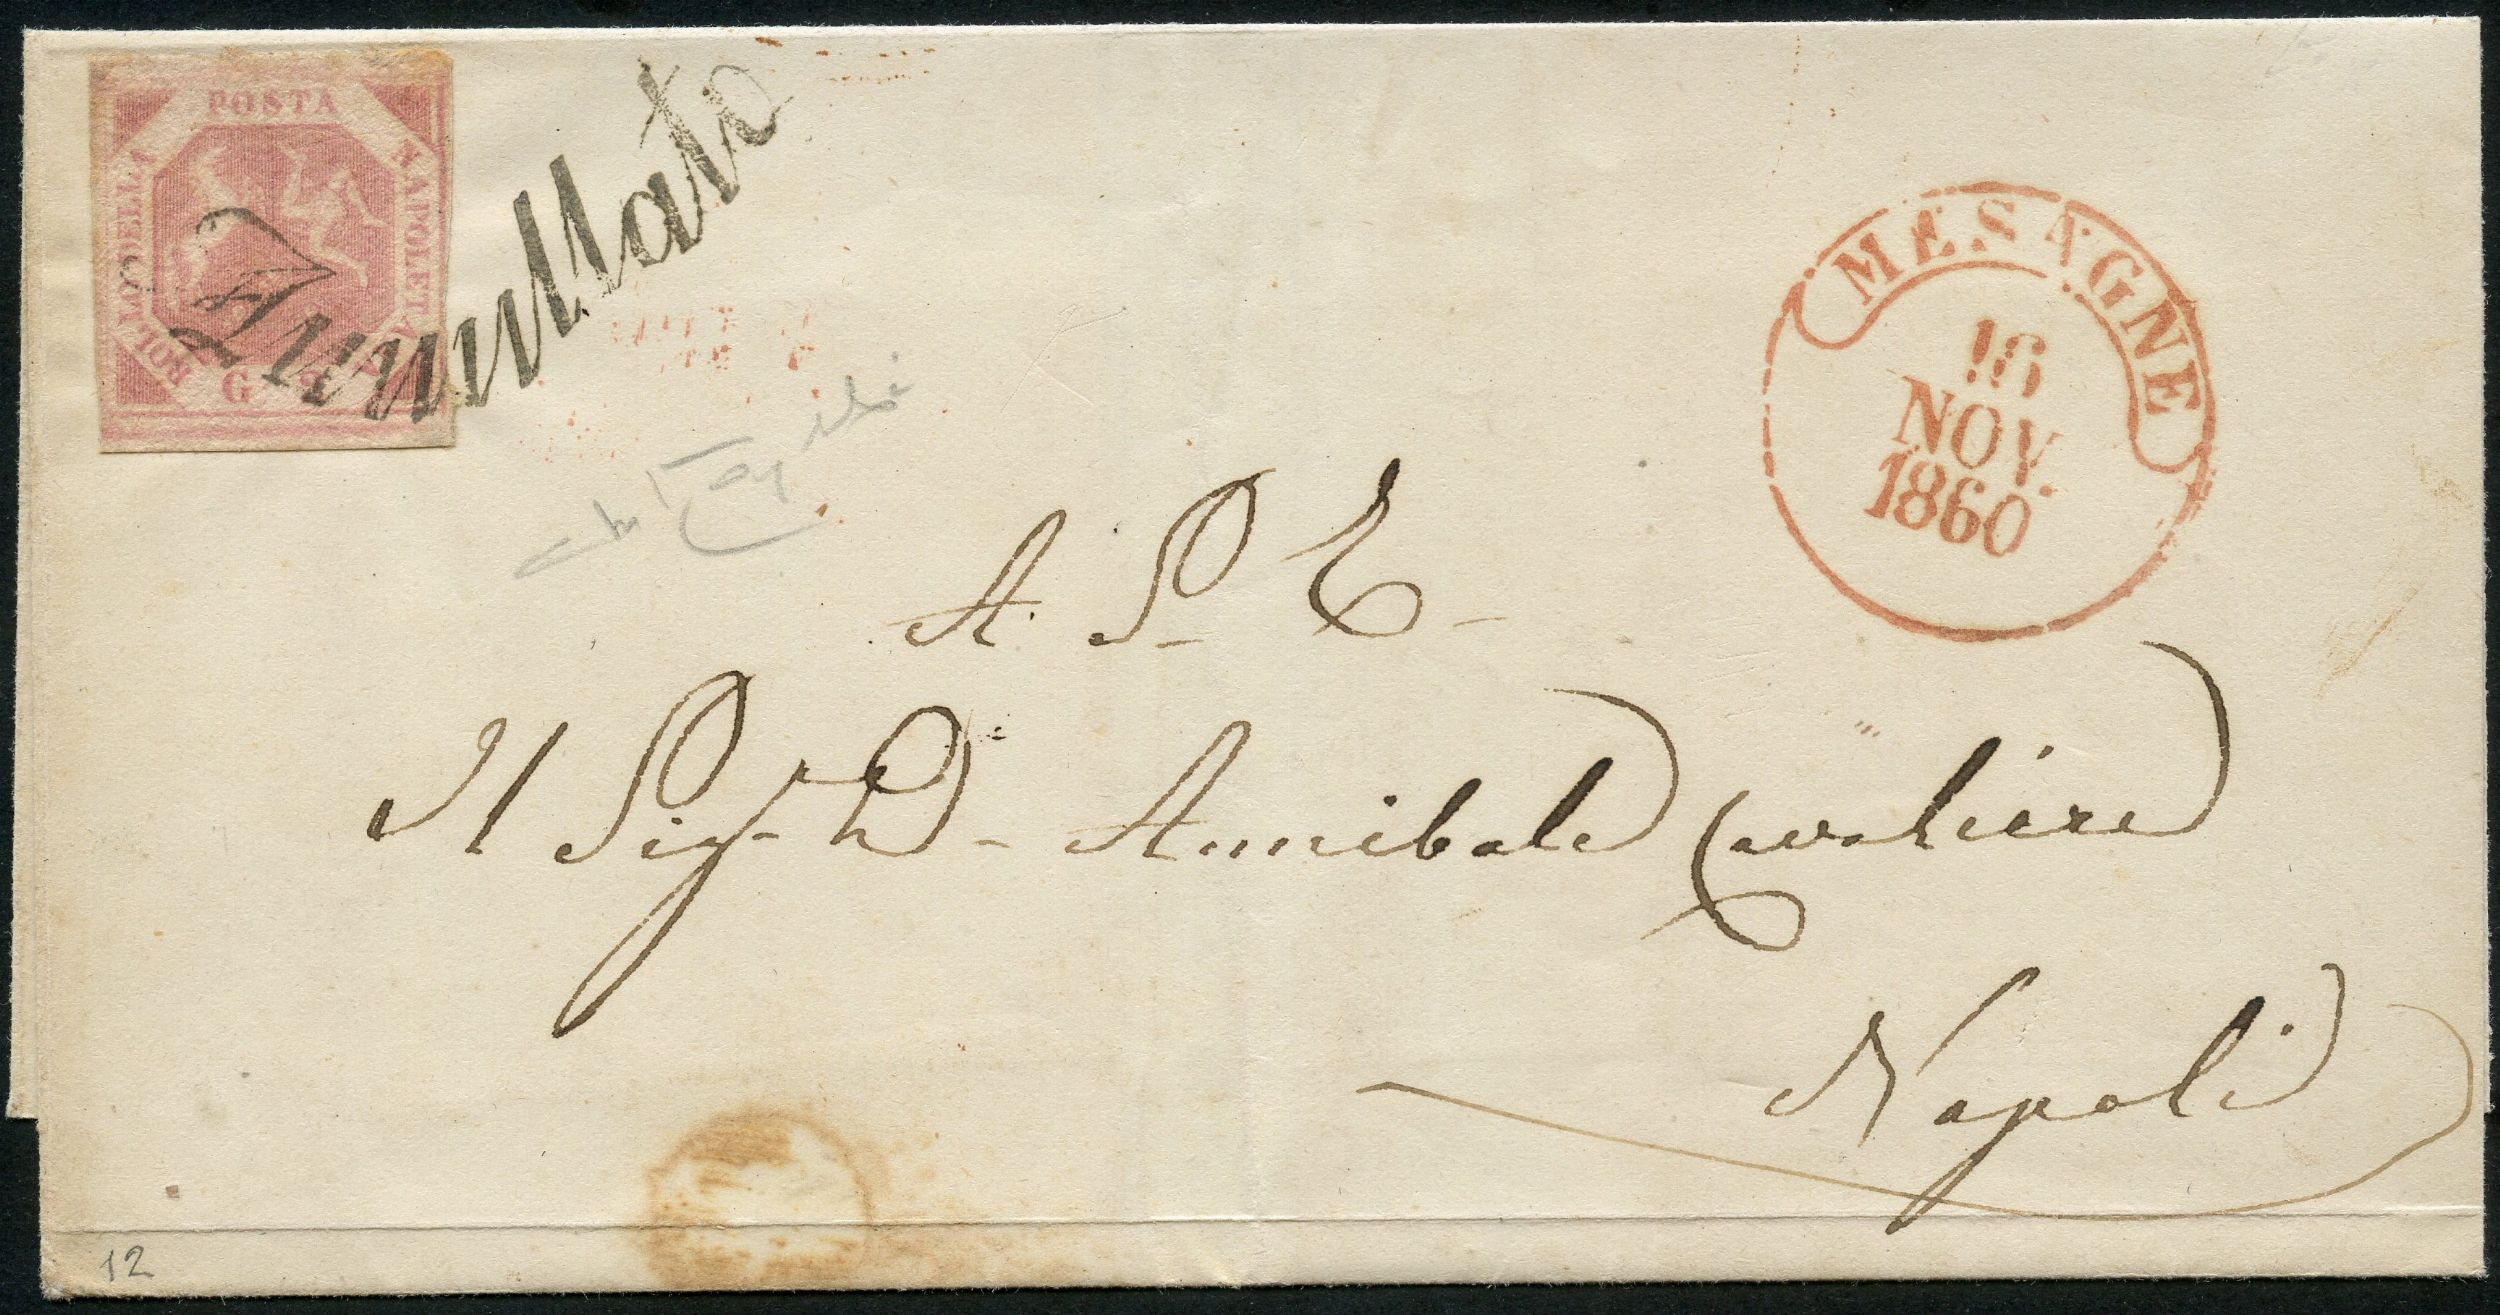 POSTA
NAPOLETANA
BOLLO DELLA
G 2
Annullato
MESAGNE
16
NOV.
1860
A. S. E.
Il Sigr D. Annibale Cavaliere
Napoli
12